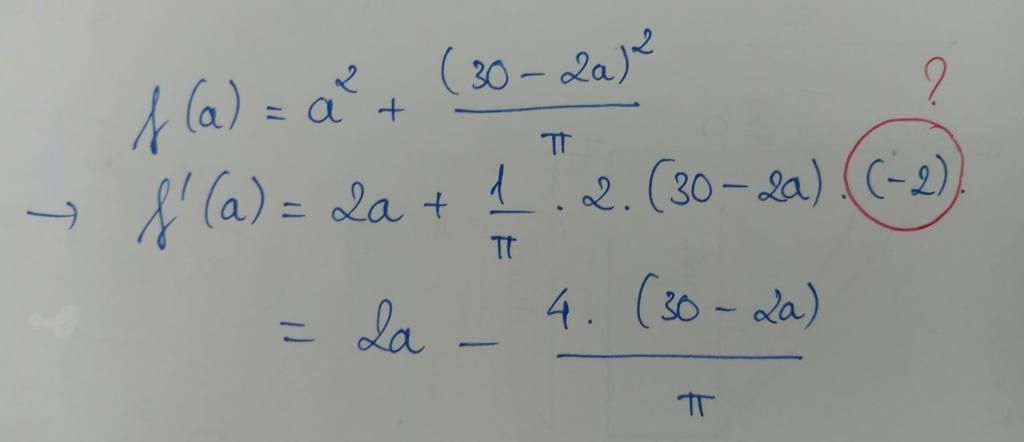 ?
f(a) = a² + (30 - 2a)² / π
→ f'(a) = 2a + 1/π · 2 · (30 - 2a) · (-2).
= 2a - 4 · (30 - 2a) / π